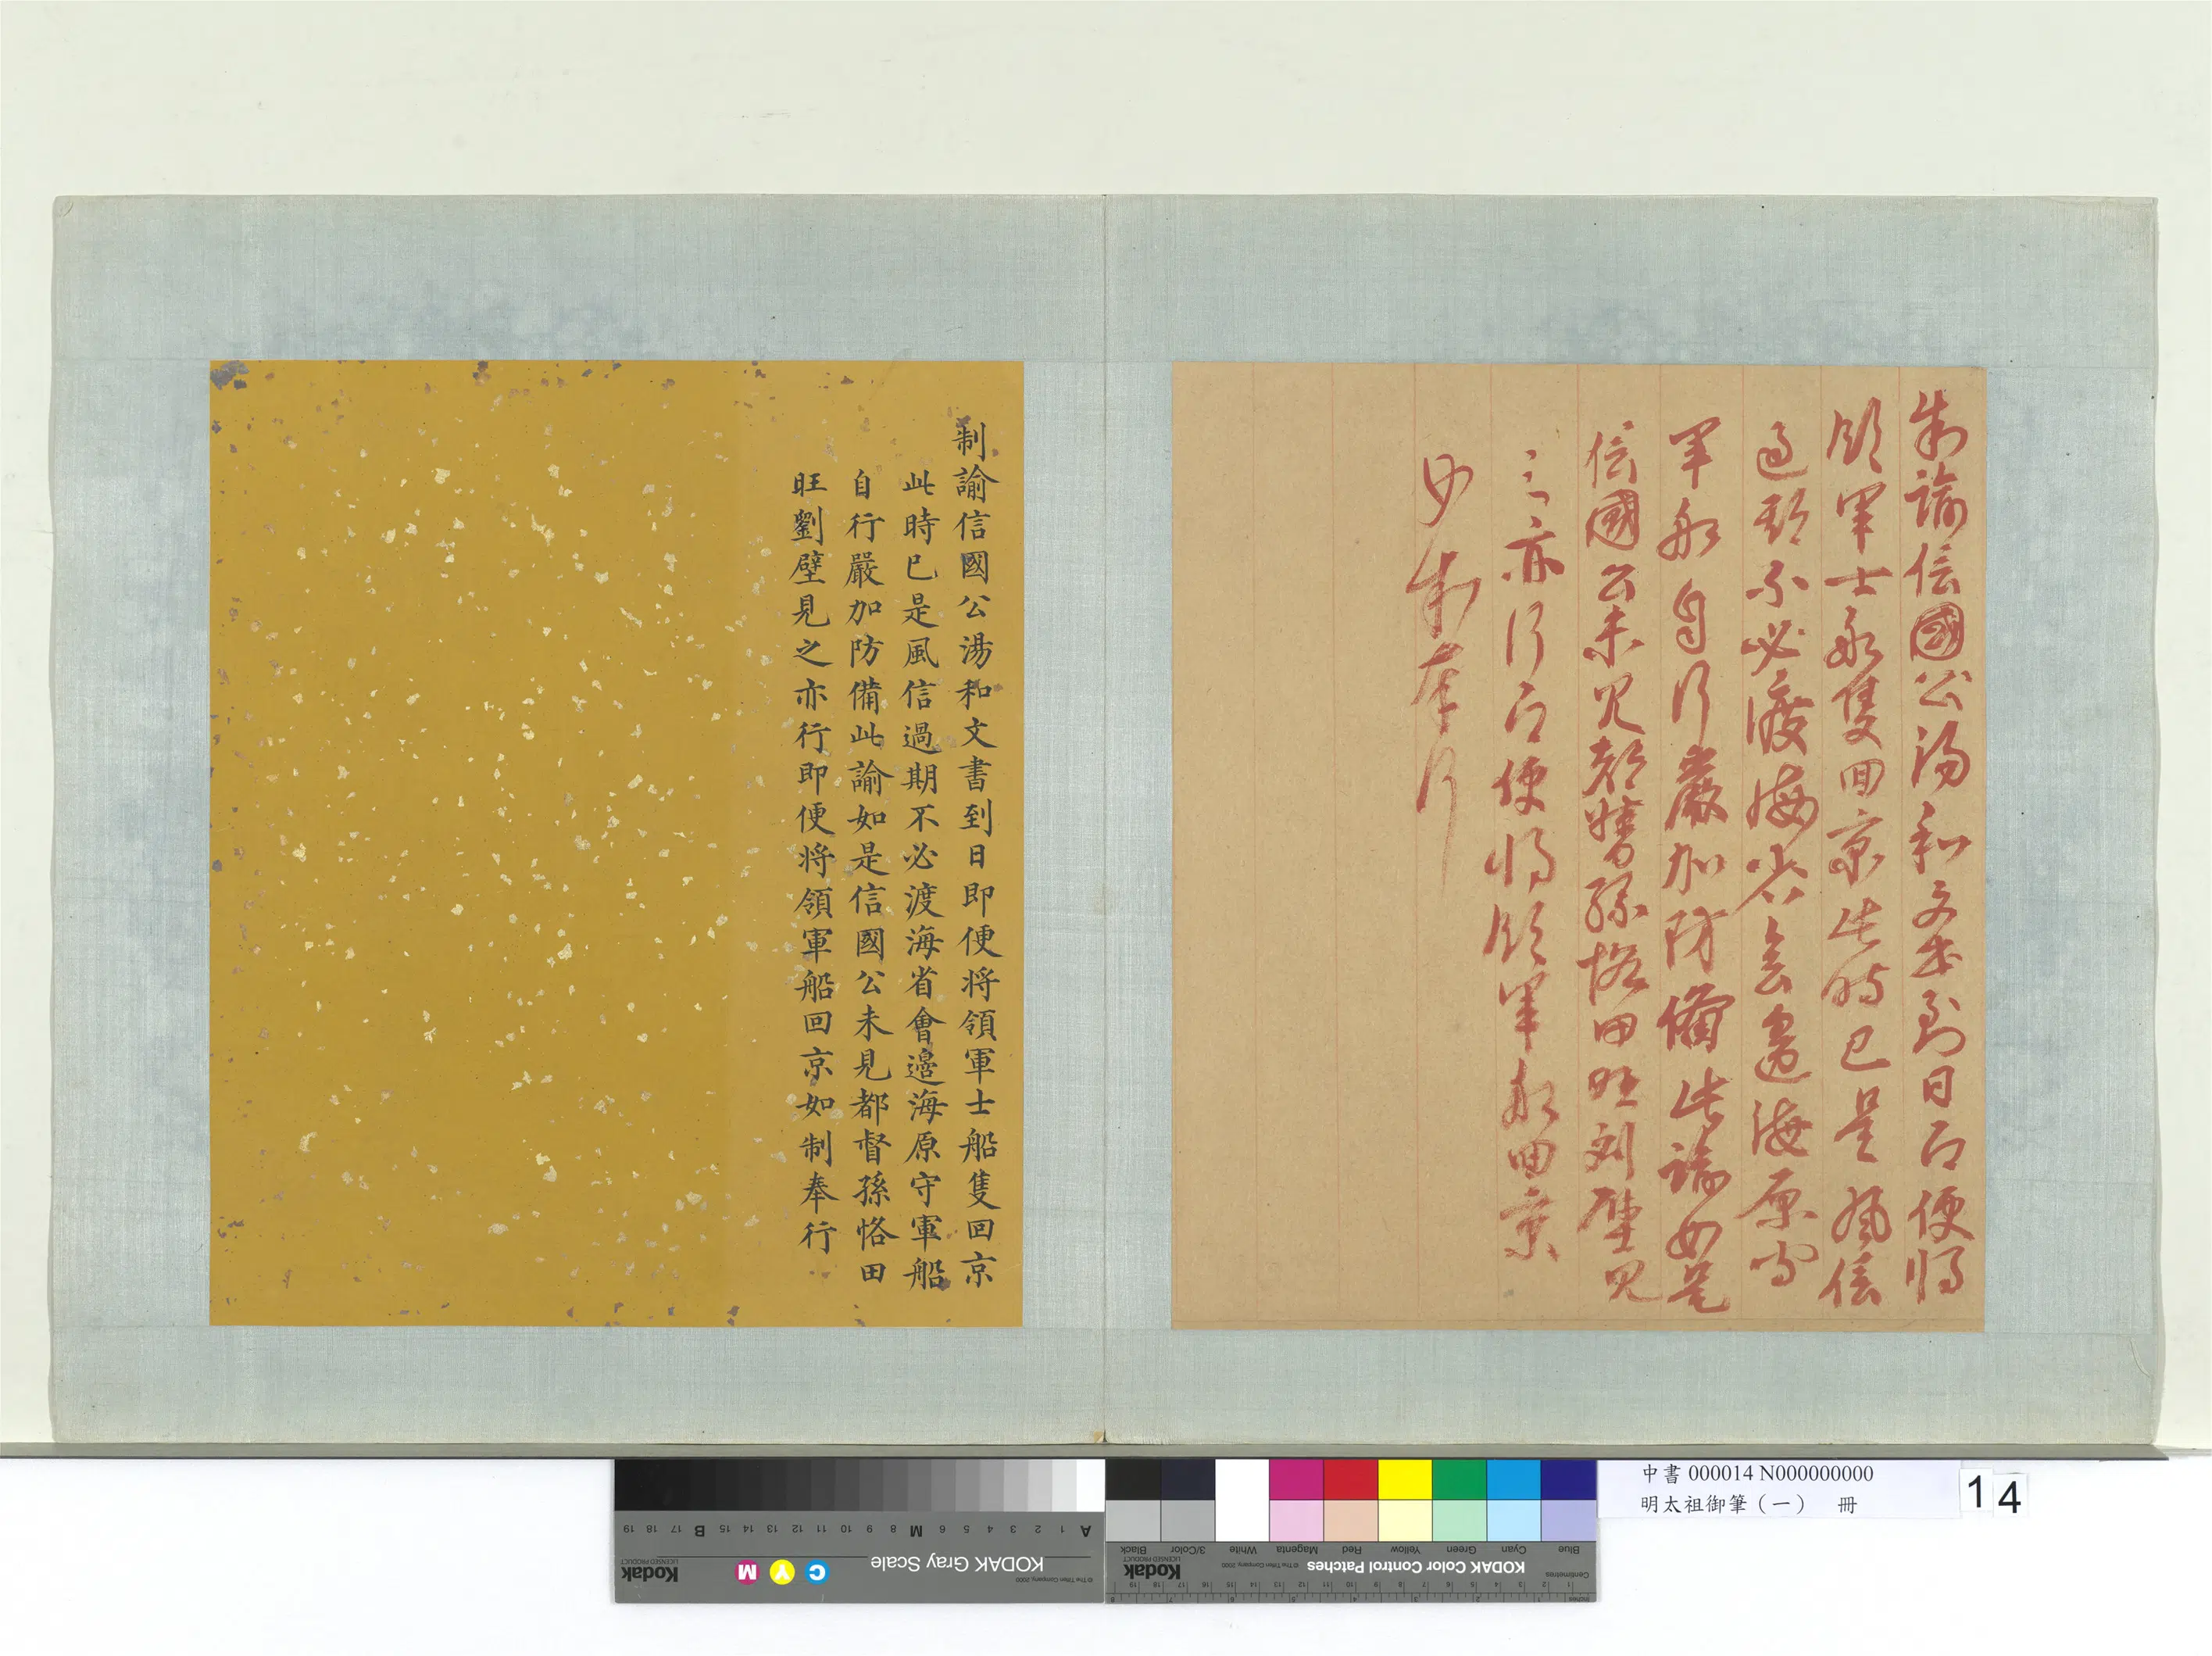 制諭信國公湯和文書到日即便将
領軍士船隻回京此時已是風信
過期不必渡海省會邊海原守
軍船自行嚴加防備此諭如是
信國公未見都督孫恪田旺刘壁見
之亦行即便将領軍船回京
如制奉行
制諭信國公湯和文書到日即便将領軍士船隻回京
此時已是風信過期不必渡海省會邉海原守軍船
自行嚴加防備此諭如是信國公未見都督孫恪田
旺劉壁見之亦行即便将領軍船回京如制奉行
中書 000014 N000000000
明太祖御筆（一） 冊
14
KODAK Gray Scale
C Y M
Kodak
LICENSED PRODUCT
© The Tiffen Company, 2000
A 1 2 3 4 5 6 M 8 9 10 11 12 13 14 15 B 17 18 19
KODAK Color Control Patches
Blue Cyan Green Yellow Red Magenta White 3/Color Black
Kodak
LICENSED PRODUCT
© The Tiffen Company, 2000
Centimetres
Inches